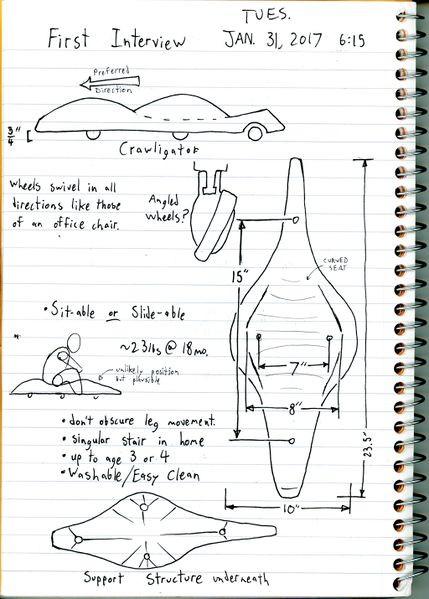 TUES.
First Interview JAN. 31, 2017 6:15
Preferred
Direction
3/4"
Crawligator
Wheels swivel in all
directions like those
of an office chair.
Angled
Wheels?
CURVED
SEAT
15"
• Sit-able or Slide-able
~23 lbs @ 18 mo.
unlikely position
but plausible
7"
8"
23.5"
• don't obscure leg movement.
• singular stair in home
• up to age 3 or 4
• Washable/Easy Clean
10"
Support Structure underneath